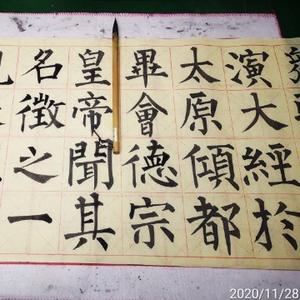 演大經於
太原傾都
畢會德宗
皇帝聞其
名徵之一
2020/11/28